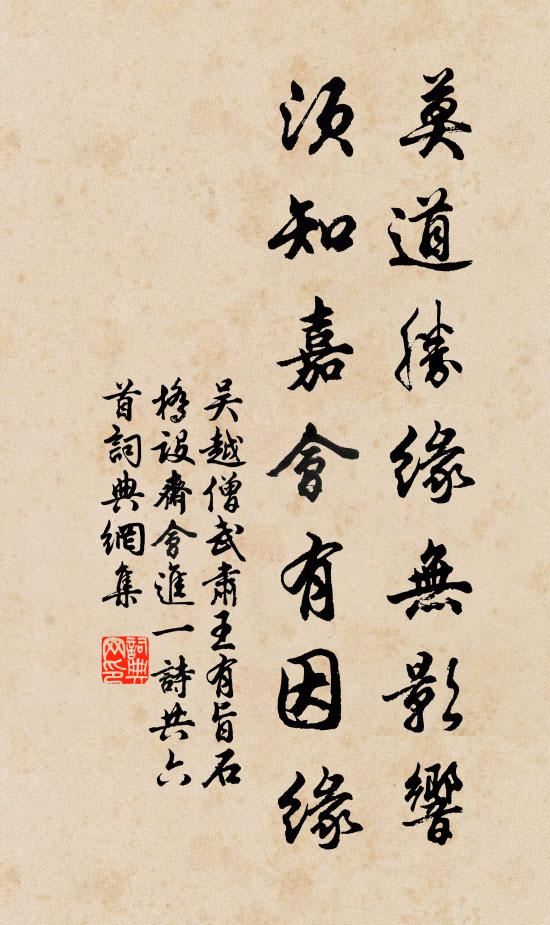 莫道勝緣無影響
須知嘉會有因緣
吴越僧武肅王有旨石
橋設齋會進一詩共六
首詞典網集
詞典
网印